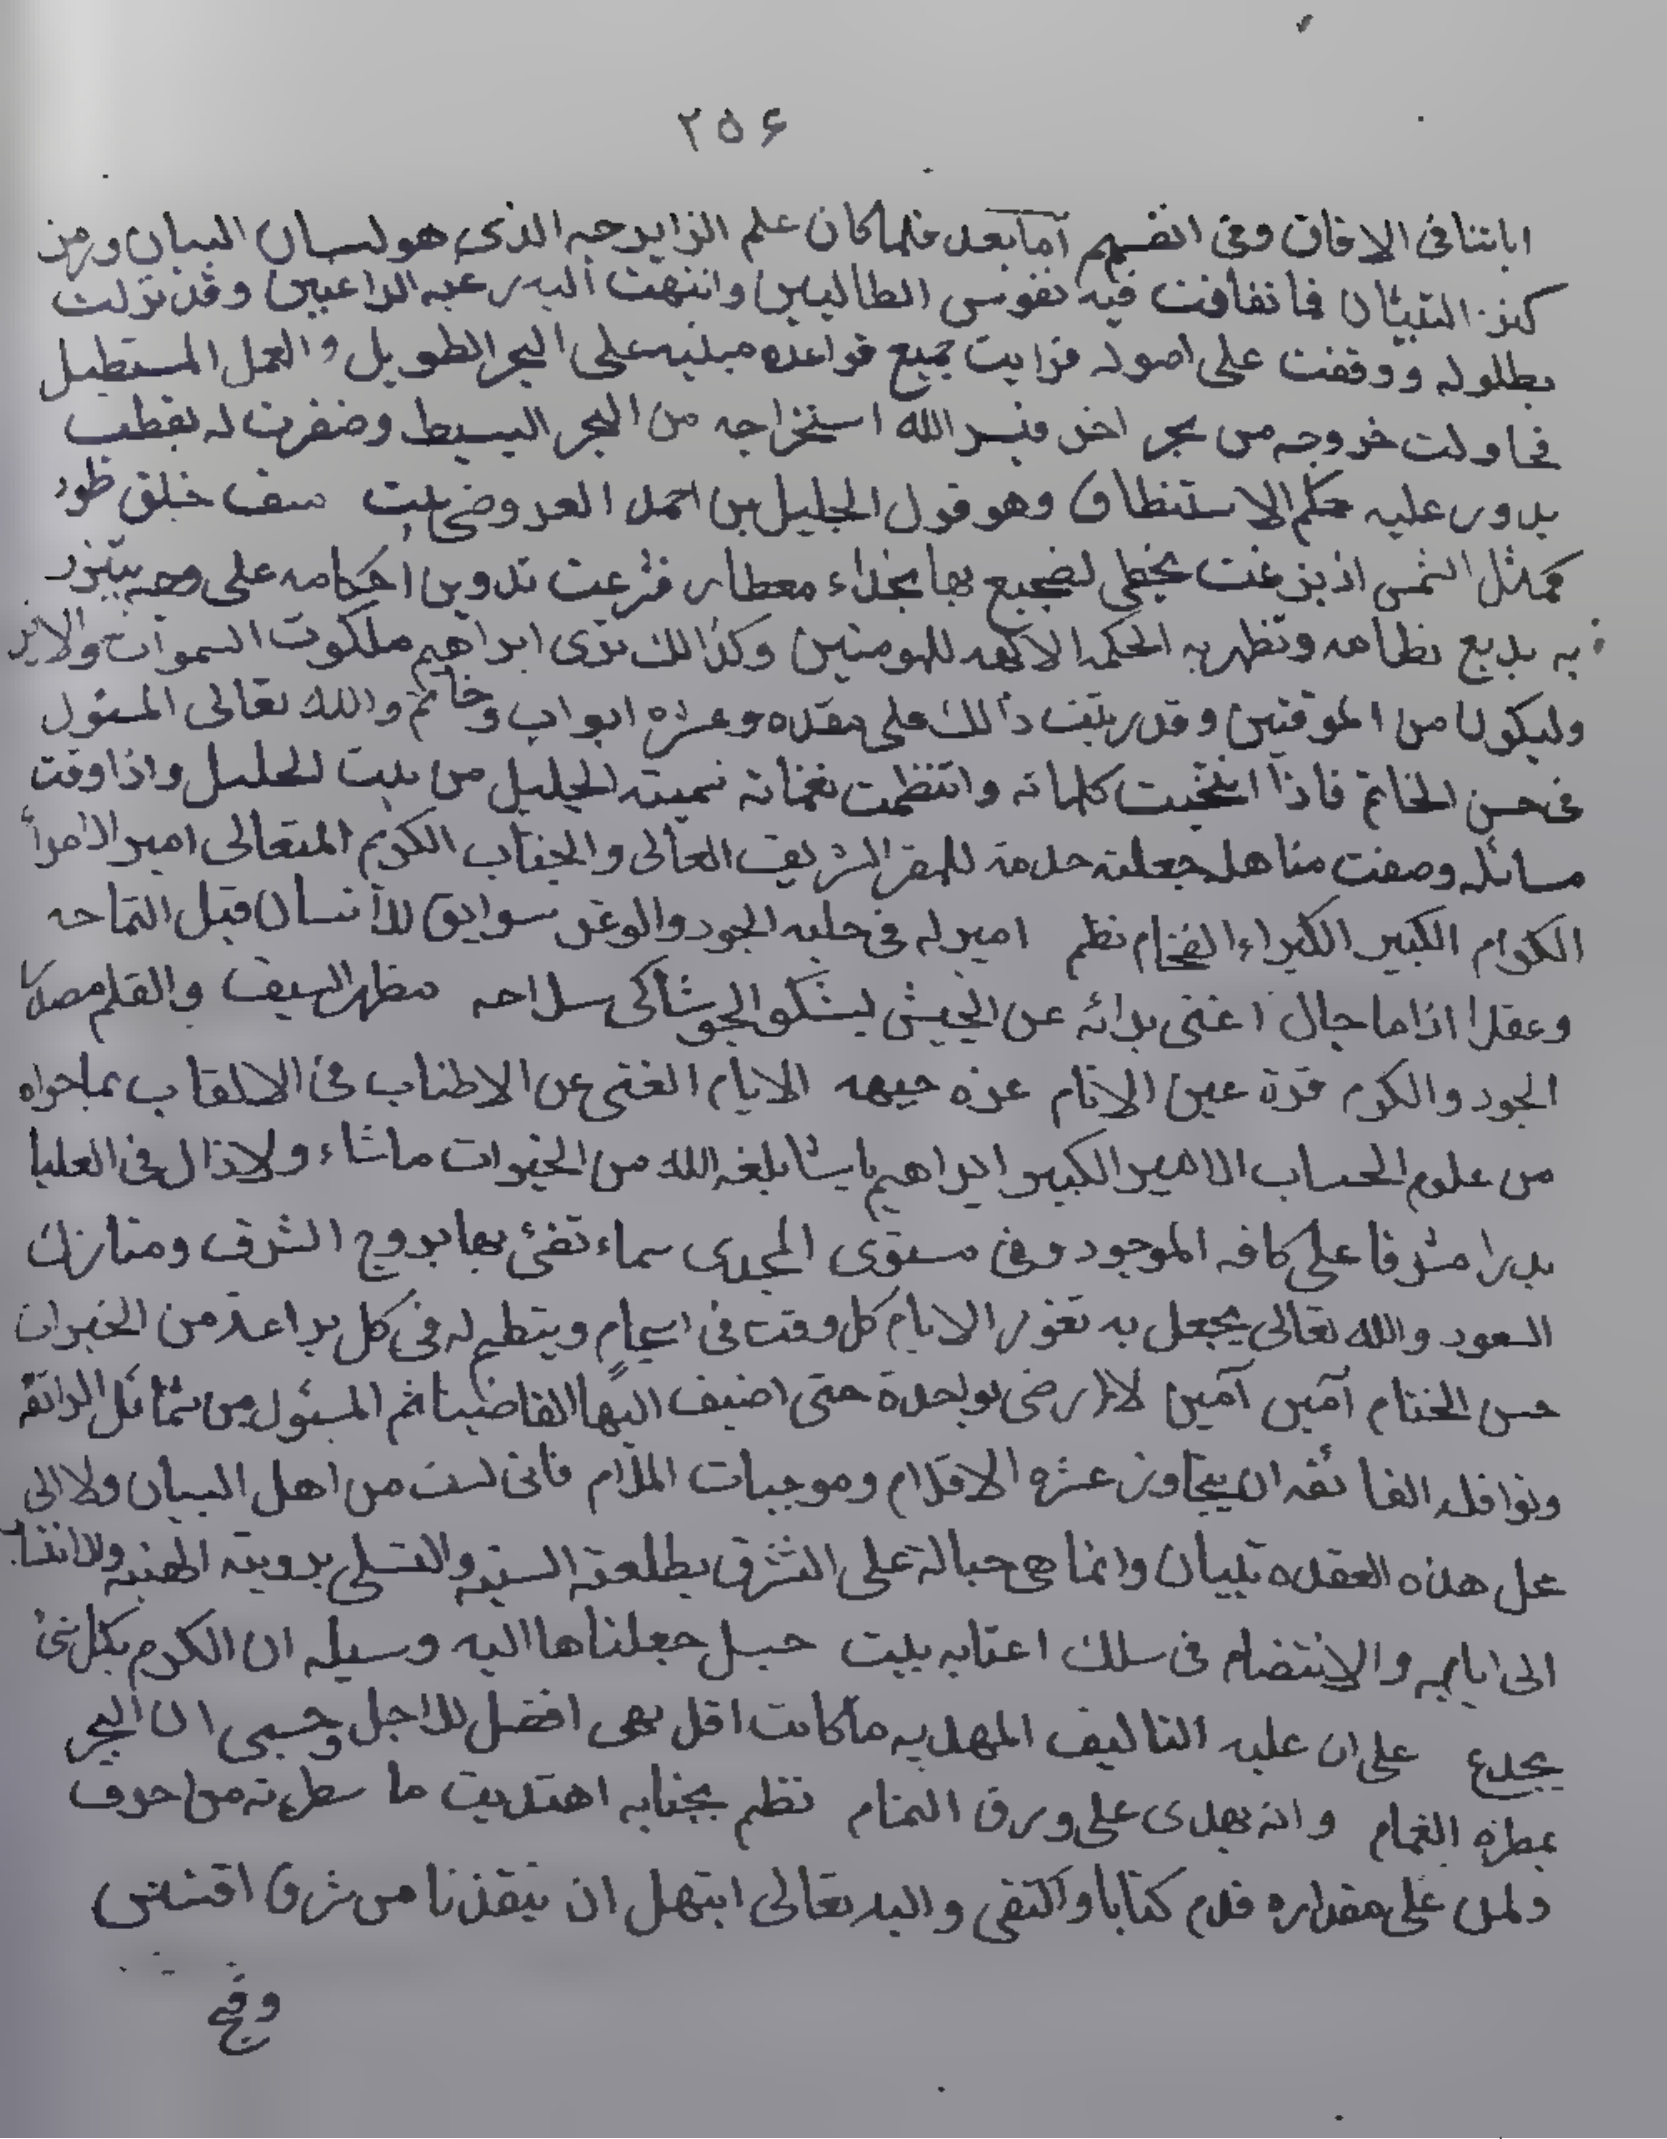 ٢٥٦
اياتنا فى الافاق وفى انفسهم آما بعد فلما كان علم الزايرجه الذى هو لسان البيان ورمز
كنز التبيان فاتفاقت فيه نفوس الطالبين وانتهت اليه رغبه الراغبين وقد نزلت
بطلوله ووقفت على اصوله فرايت جميع قواعده مبنيه على البحر الطويل والعمل المستطيل
فحاولت خروجه من بحر اخر فيسر الله استخراجه من البحر البسيط وضفرت له بقطب
يدور عليه حكم الاستنطاق وهو قول الجليل بن احمد العروضى بيت صف خلق خود
كمثل الشمس اذ بزغت يحظى لضجيع بها بخلاء معطار فشرعت تدوين احكامه على وجه يتيزر
به بديع نظامه وتظهر به الحكمه الالهه للمومنين وكذالك نرى ابراهيم ملكوت السموات والارض
وليكون من الموقنين وقد رتبت ذالك على مقدمه وعشره ابواب وخاتم والله تعالى المسئول
فى حسن الخاتم فاذا انتخبت كلماته وانتظمت نغماته سميته الجليل من بيت الخليل واذا وفت
مسائله وصفت مناهله جعلته خدمة للمقر الشريف العالى والجناب الكريم المتعالى امير الامرأ
الكرام الكبير الكبراء الفخام نظم امير له فى حلبه الجود والوغى سوابق للأنسان قبل التماحه
وعقلا اذا ما جال اغنى برائه عن الجيش ليشكو الجو شاكى سلاحه مظهر السيف والقلم مصدر
الجود والكرم قرة عين الانام غره جبهه الايام الغنى عن الاطناب فى الالقاب بما حواه
من علوم الحساب الامير الكبير ابراهيم باشا بلغه الله من الخيرات ماشاء ولازال فى العليا
بدرا مشرفا على كافه الموجود وفى مستوى المجدى سماء تضئ بها بروج الشرف ومنازل
السعود والله تعالى يجعل به تغور الايام كل وقت فى ابتسام وينظم له فى كل براعة من الخيرات
حسن الختام آمين آمين لا ارضى بواحدة حتى اضيف اليها الفا ضينا ثم المسئول من شمائل الرائقه
ونوافله الفائقه ان يتجاوز عشره الاقدام وموجبات الملام فانى لست من اهل البيان ولا لى
عل هذه العقده تبيان وانما هى حبالة على التشرق بطلعته السنيه والتسلى برويته الهنيه ولانتساب
الى ايابه والانتضام فى سلك اعتابه بيت حبل جعلناها اليه وسيله ان الكرم بكل شئ
يجدع على ان عليه التاليف المهديه ما كانت اقل بهى افضل للاجل وحسبى ان البحر
يمطره الغمام وانه يهدى على ورق التمام نظم بجنابه اهتديت ما سطرته من احرف
ولمن على مقداره قدم كتابا واكتفى واليه تعالى ابتهل ان ينقذنا من شرق اقتنص
وفح